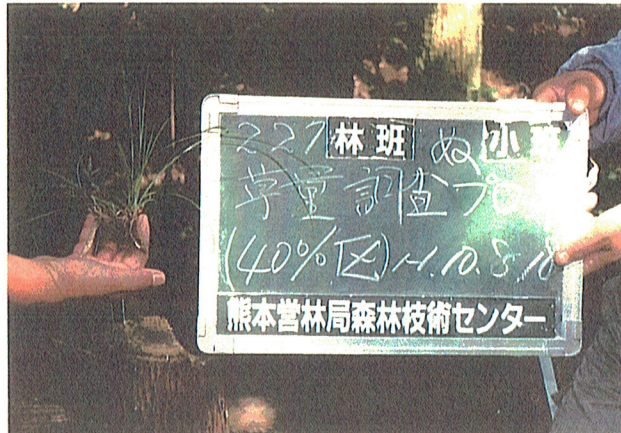 227 林班 ぬ 小
草量調査プ
(40%区) H.10.8.18
熊本営林局森林技術センター